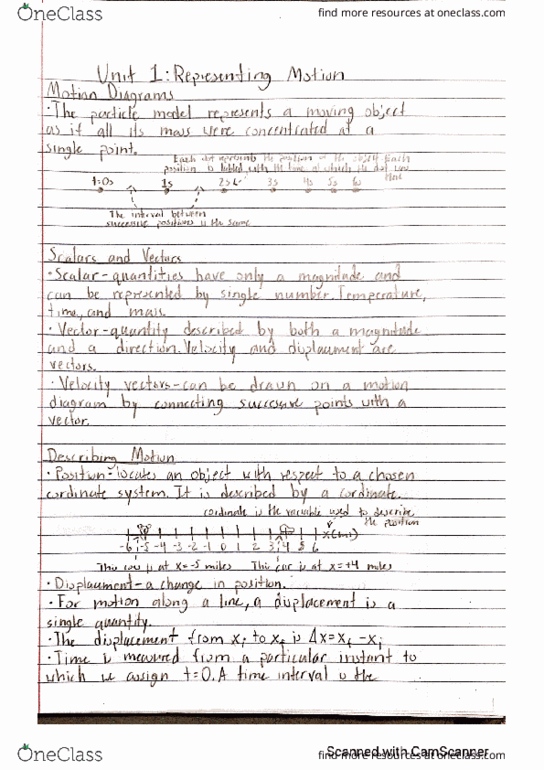 OneClass
find more resources at oneclass.com
Unit 1: Representing Motion
Motion Diagrams
• The particle model represents a moving object
as if all its mass were concentrated at a
single point.
Each dot represents the position of the object. Each
position is labled with the time at which the dot was
there
t=0s 1s 2s 3s 4s 5s 6s
The interval between
successive positions is the same
Scalars and Vectors
• Scalar-quantities have only a magnitude and
can be represented by single number. Temperature,
time, and mass.
• Vector-quantity described by both a magnitude
and a direction. Velocity and displacment are
vectors.
• Velocity vectors-can be drawn on a motion
diagram by connecting successive points with a
vector.
Describing Motion
• Position-locates an object with respect to a chosen
cordinate system. It is described by a cordinate.
cordinate is the variable used to describe
the position
-6 -5 -4 -3 -2 -1 0 1 2 3 4 5 6 x(mi)
This cow is at x=-5 miles This car is at x=+4 miles
• Displacment-a change in position.
• For motion along a line, a displacment is a
single quantity.
• The displacement from xi to xf is Δx=xf-xi
• Time is measured from a particular instant to
which we assign t=0. A time interval is the
OneClass
find more resources at oneclass.com
Scanned with CamScanner